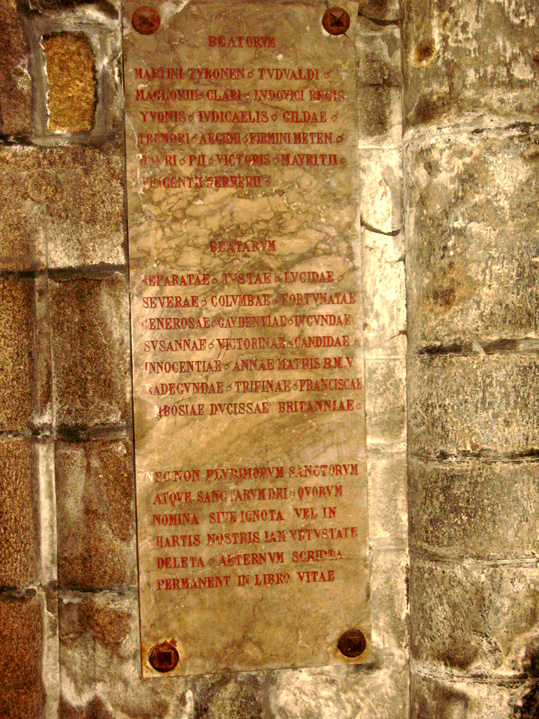 BEATORVM
MARTINI TVRONEN o TVDVALDI o
MAGLORII o CLARI o LVDOVICI REGIS
YVONIS o IVDICAELIS o GILDAE o
TRENORI o AEGIDII o FIRMINI METEN o
PII o VICTORIS o MAVRITII o
FERRERII
BEATARVM
SEPARATAE o IVSTAE o LVCIDAE o
SEVERAE o COLVMBAE o FORTVNATAE
GENEROSAE o GAVDENTIAE o IVCVNDAE
SVSANNAE o VICTORINAE o CANDIDAE
INNOCENTIAE o ANNAE MATRIS B M V
RADEGVNDAE o TRIFINAE o FRANCISCAE
AMBOSIAE DVCISSAE o BRITANNIAE o
EC NON PLVRIMORVM SANCTORVM
ATQVE SANCTARVM DEI o QVORVM
NOMINA o SIVE IGNOTA o VEL IN
HARTIS NOSTRIS IAM VETVSTATE
DELETA o AETERNVM SCRIPTA
PERMANENT IN LIBRO VITAE